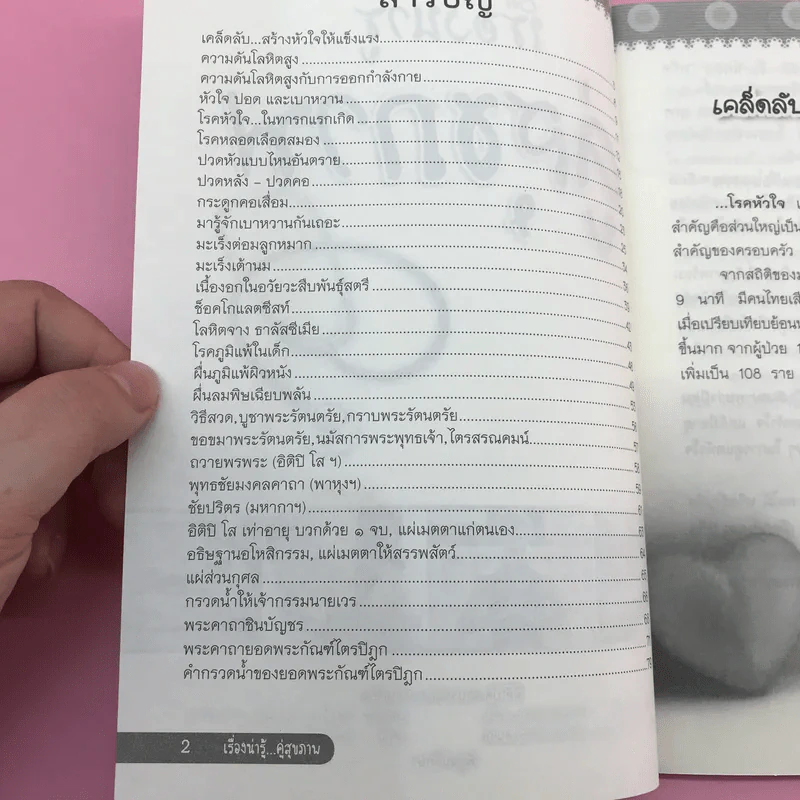 สารบัญ
เคล็ดลับ...สร้างหัวใจให้แข็งแรง
ความดันโลหิตสูง
ความดันโลหิตสูงกับการออกกำลังกาย
หัวใจ ปอด และเบาหวาน
โรคหัวใจ...ในทารกแรกเกิด
โรคหลอดเลือดสมอง
ปวดหัวแบบไหนอันตราย
ปวดหลัง - ปวดคอ
กระดูกคอเสื่อม
มารู้จักเบาหวานกันเถอะ
มะเร็งต่อมลูกหมาก
มะเร็งเต้านม
เนื้องอกในอวัยวะสืบพันธุ์สตรี
ช็อคโกแลตซีสท์
โลหิตจาง ธาลัสซีเมีย
โรคภูมิแพ้ในเด็ก
ผื่นภูมิแพ้ผิวหนัง
ผื่นลมพิษเฉียบพลัน
วิธีสวด,บูชาพระรัตนตรัย,กราบพระรัตนตรัย
ขอขมาพระรัตนตรัย,นมัสการพระพุทธเจ้า,ไตรสรณคมน์
ถวายพรพระ (อิติปิ โส ฯ)
พุทธชัยมงคลคาถา (พาหุงฯ)
ชัยปริตร (มหากาฯ)
อิติปิ โส เท่าอายุ บวกด้วย ๑ จบ, แผ่เมตตาแก่ตนเอง
อธิษฐานอโหสิกรรม, แผ่เมตตาให้สรรพสัตว์ 64
แผ่ส่วนกุศล 65
กรวดน้ำให้เจ้ากรรมนายเวร 66
พระคาถาชินบัญชร 68
พระคาถายอดพระกัณฑ์ไตรปิฎก
คำกรวดน้ำของยอดพระกัณฑ์ไตรปิฎก 79
2 เรื่องน่ารู้...คู่สุขภาพ
เคล็ดลับ
...โรคหัวใจ
สำคัญคือส่วนใหญ่เป็น
สำคัญของครอบครัว
จากสถิติของ
9 นาที มีคนไทยเสี
เมื่อเปรียบเทียบย้อน
ขึ้นมาก จากผู้ป่วย
เพิ่มเป็น 108 ราย